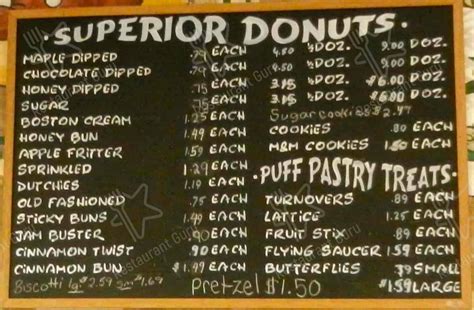 SUPERIOR DONUTS.
MAPLE DIPPED .79 EACH 4.50 ½DOZ. 9.00 DOZ.
CHOCOLATE DIPPED .79 EACH 4.50 ½DOZ. 9.00 DOZ.
HONEY DIPPED .79 EACH 3.15 ½DOZ. $6.00 DOZ.
SUGAR .79 EACH 3.15 ½DOZ. $6.00 DOZ.
BOSTON CREAM 1.25 EACH
HONEY BUN 1.49 EACH
APPLE FRITTER 1.59 EACH
SPRINKLED 1.29 EACH
DUTCHIES 1.19 EACH
OLD FASHIONED .75 EACH
STICKY BUNS EACH
JAM BUSTER EACH
CINNAMON TWIST .90 EACH
CINNAMON BUN $1.49 EACH
Biscotti lg $2.59 sm $1.69
Pretzel $1.50
Sugar cookies $2.47
COOKIES .80 EACH
M&M COOKIES EACH
PUFF PASTRY TREATS.
TURNOVERS .89 EACH
LATTICE 1.25 EACH
FRUIT STIX .89 EACH
FLYING SAUCER 1.59 EACH
BUTTERFLIES .39 SMALL
$1.59 LARGE
Restaurant Guru